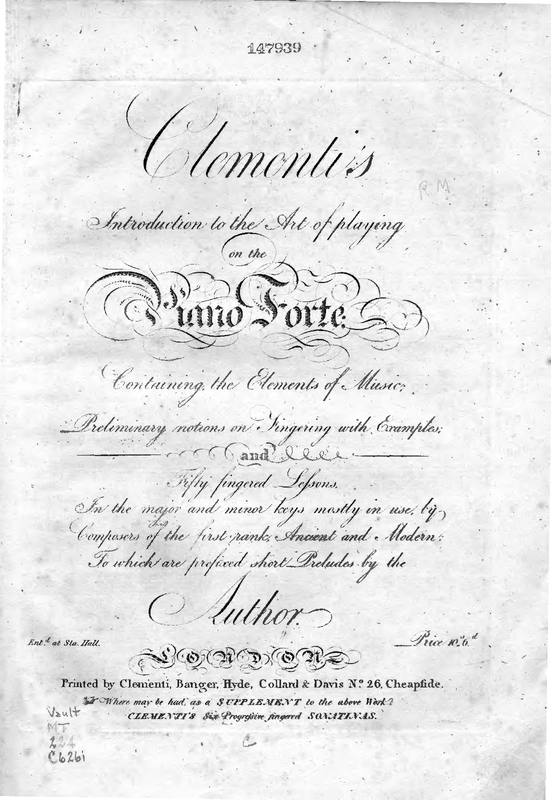 147939
Clementi's
R M
Introduction to the Art of playing
on the
Piano Forte:
Containing, the Elements of Music;
Preliminary notions on Fingering with Examples;
and
Fifty fingered Leſsons,
In the major and minor keys mostly in use, by
Composers of the first rank, Ancient and Modern:
To which are prefixed short Preludes by the
Author.
Ent.d at Sta. Hall.
Price 10.s 6.d
LONDON,
Printed by Clementi, Banger, Hyde, Collard & Davis No. 26, Cheapſide.
Where may be had, as a SUPPLEMENT to the above Work
CLEMENTI'S Six Progreſsive fingered SONATINAS.
Vault
MT
224
C626i